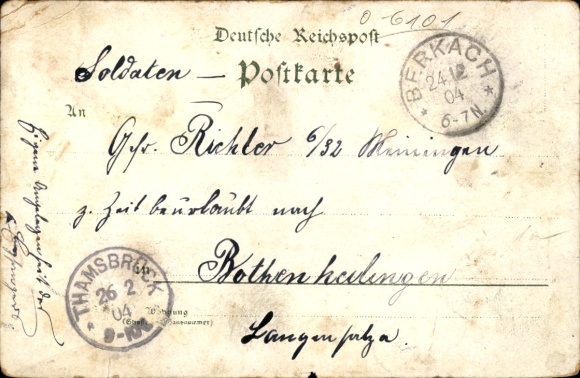 0 6101
Deutsche Reichspost
Soldaten – Postkarte
BERKACH
24 12
04
6-7N.
An
Gefr. Richter 6/32 Meiningen
z. Zeit beurlaubt nach
Bothenheilingen
Langensalza.
THAMSBRÜCK
26 2
04
9-10
in
Wohnung
(Straße und Hausnummer)
Eigene Angelegenheit des